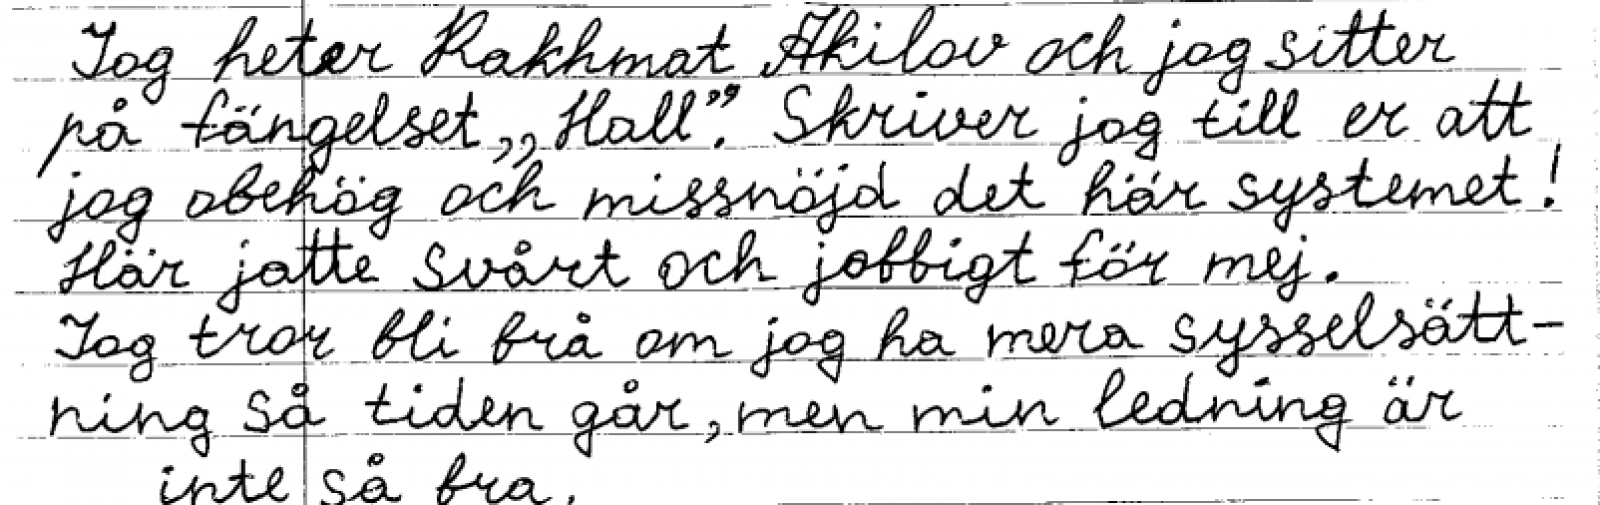 Jag heter Rakhmat Akilov och jag sitter
på fängelset „Hall”. Skriver jag till er att
jag obehög och missnöjd det här systemet!
Här jatte svårt och jobbigt för mej.
Jag tror bli brå om jag ha mera sysselsätt-
ning så tiden går, men min ledning är
inte så bra.